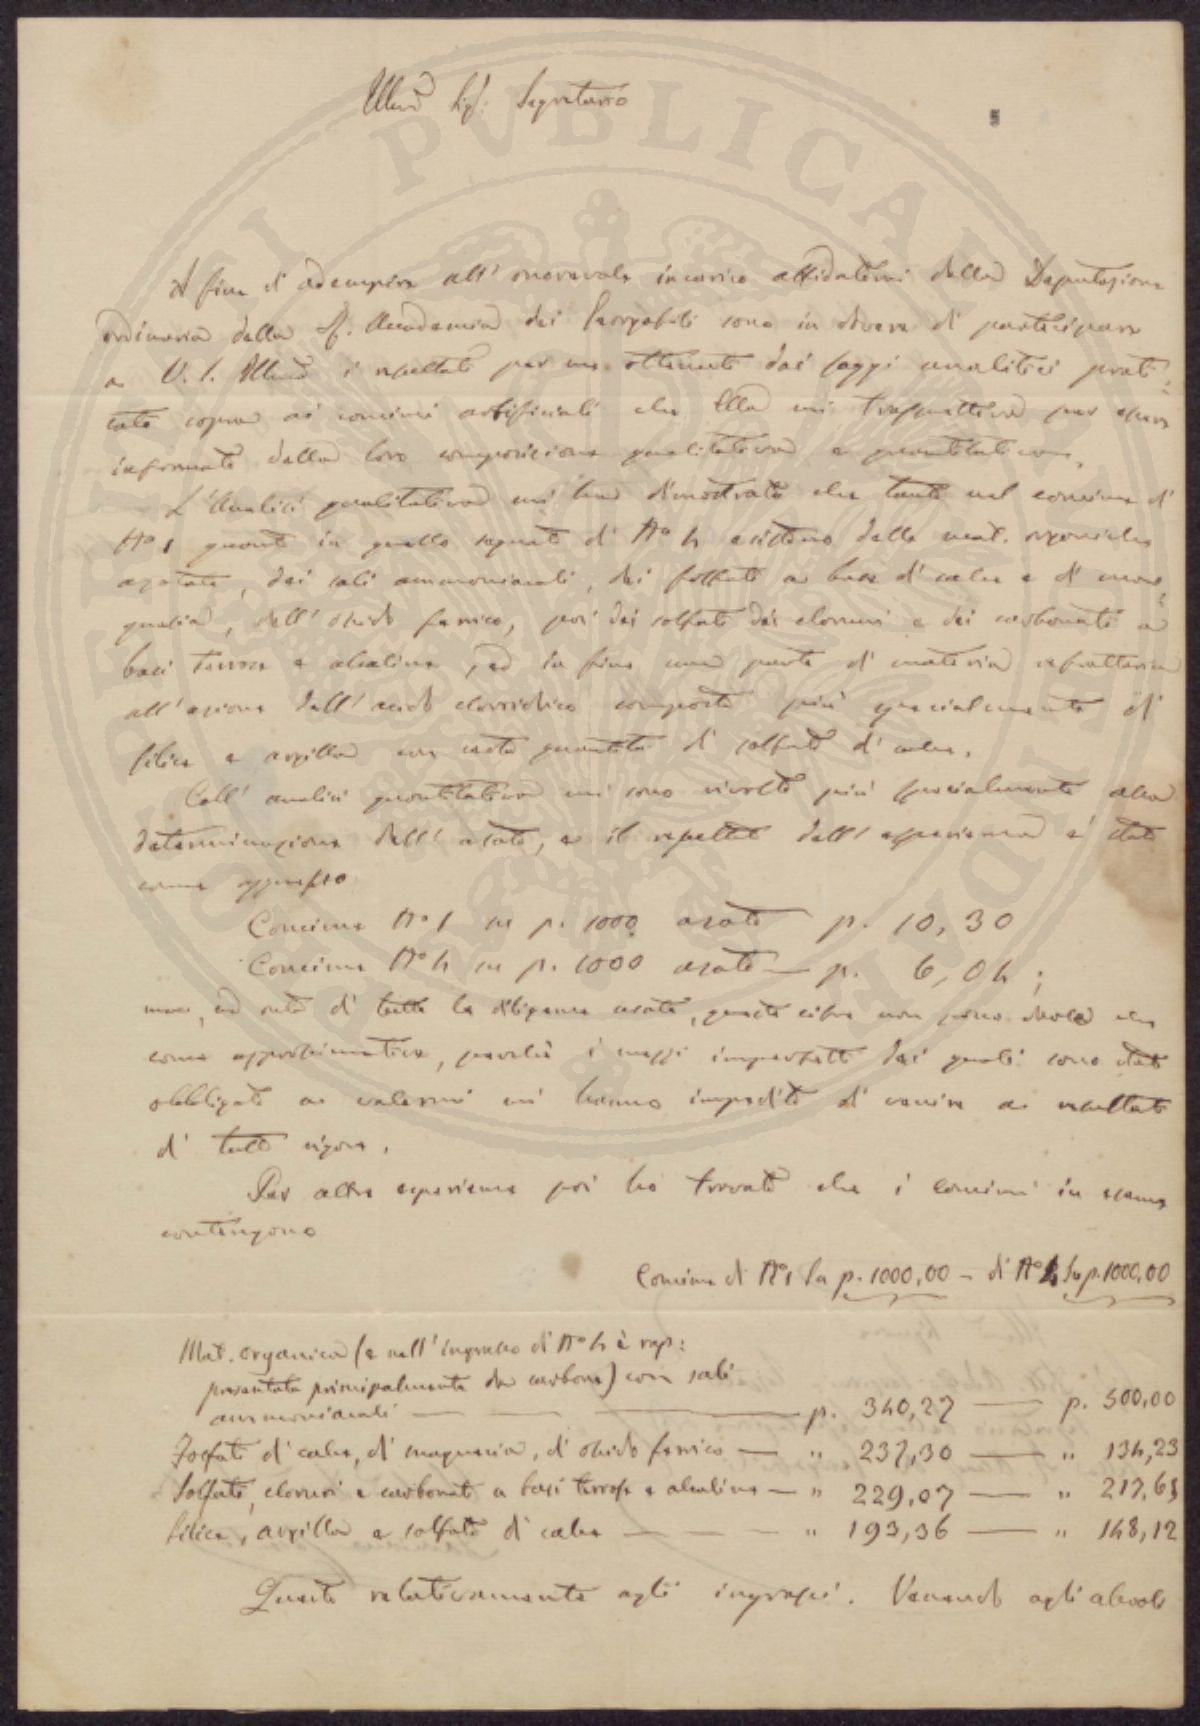 Illmo Sig: Segretario
5
A fine d'adempire all'onorevole incarico affidatomi dalla Deputazione
ordinaria della R. Accademia dei Georgofili sono in dovere di partecipare
a V. S. Illma i resultati per me ottenuti dai saggi analitici prati=
cati sopra ai concimi artificiali che Ella mi trasmetteva per essere
informato della loro composizione qualitativa e quantitativa.
L'Analisi qualitativa mi ha dimostrato che tanto nel concime di
N° 1 quanto in quello segnato di N° 4 esistono delle mat. organiche
azotate, dei sali ammoniacali, dei fosfati a base di calce e di ma=
gnesia, dell'ossido ferrico, poi dei solfati dei cloruri e dei carbonati a
basi terrose e alcaline, ed in fine una parte di materia refrattaria
all'azione dell'acido cloridrico composta più specialmente di
silice e argilla con certa quantità di solfato di calce.
Coll'analisi quantitativa mi sono rivolto più specialmente alla
determinazione dell'azoto, e il resultato dell'esperienza è stato
come appresso
Concime N° 1 su p. 1000 azoto p. 10,30
Concime N° 4 su p. 1000 azoto — p. 6,04;
ma, ad onta di tutta la diligenza usata, queste cifre non posso darle che
come approssimative, perchè i mezzi imperfetti dei quali sono stato
obbligato a valermi mi hanno impedito di venire a resultati
di tutto rigore.
Per altre esperienze poi ho trovato che i concimi in esame
contengono
Concime di N° 1 su p. 1000,00 — di N° 4 su p. 1000,00
Mat. organica (e nell'ingrasso di N° 4 è rap:
presentata principalmente da carbone) con sali
ammoniacali — — — p. 340,27 — p. 500,00
Fosfati di calce, di magnesia, di ossido ferrico — " 237,30 — " 134,23
Solfati, cloruri e carbonati a basi terrose e alcaline — " 229,07 — " 217,65
Silice, argilla e solfato di calce — — — " 193,36 — " 148,12
Questo relativamente agli ingrassi. Venendo agli alcooli